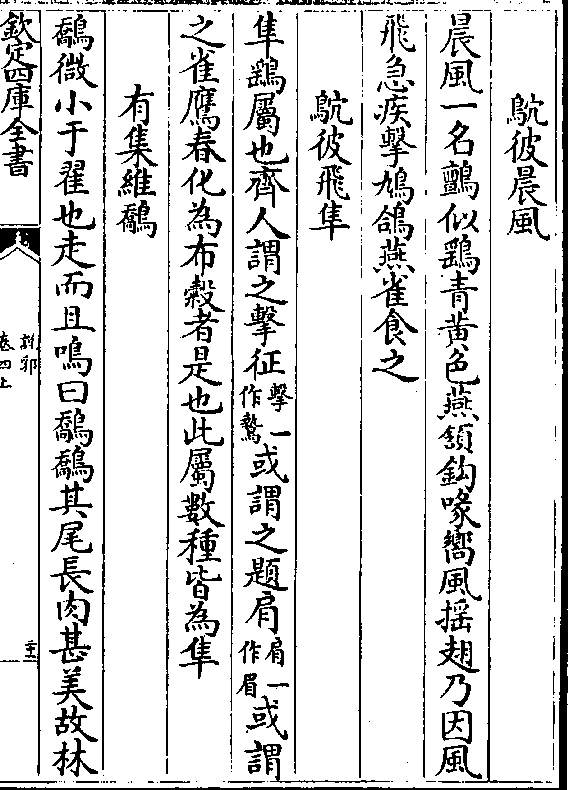 鴥彼晨風
晨風一名鸇似鷂青黃色燕頷鈎喙嚮風摇翅乃因風
飛急疾擊鳩鴿燕雀食之
鴥彼飛隼
隼鷂屬也齊人謂之擊征擊一作鷙或謂之題肩肩一作眉或謂
之雀鷹春化為布穀者是也此屬數種皆為隼
有集維鷮
鷮微小于翟也走而且鳴曰鷮鷮其尾長肉甚美故林
欽定四庫全書
卷四上